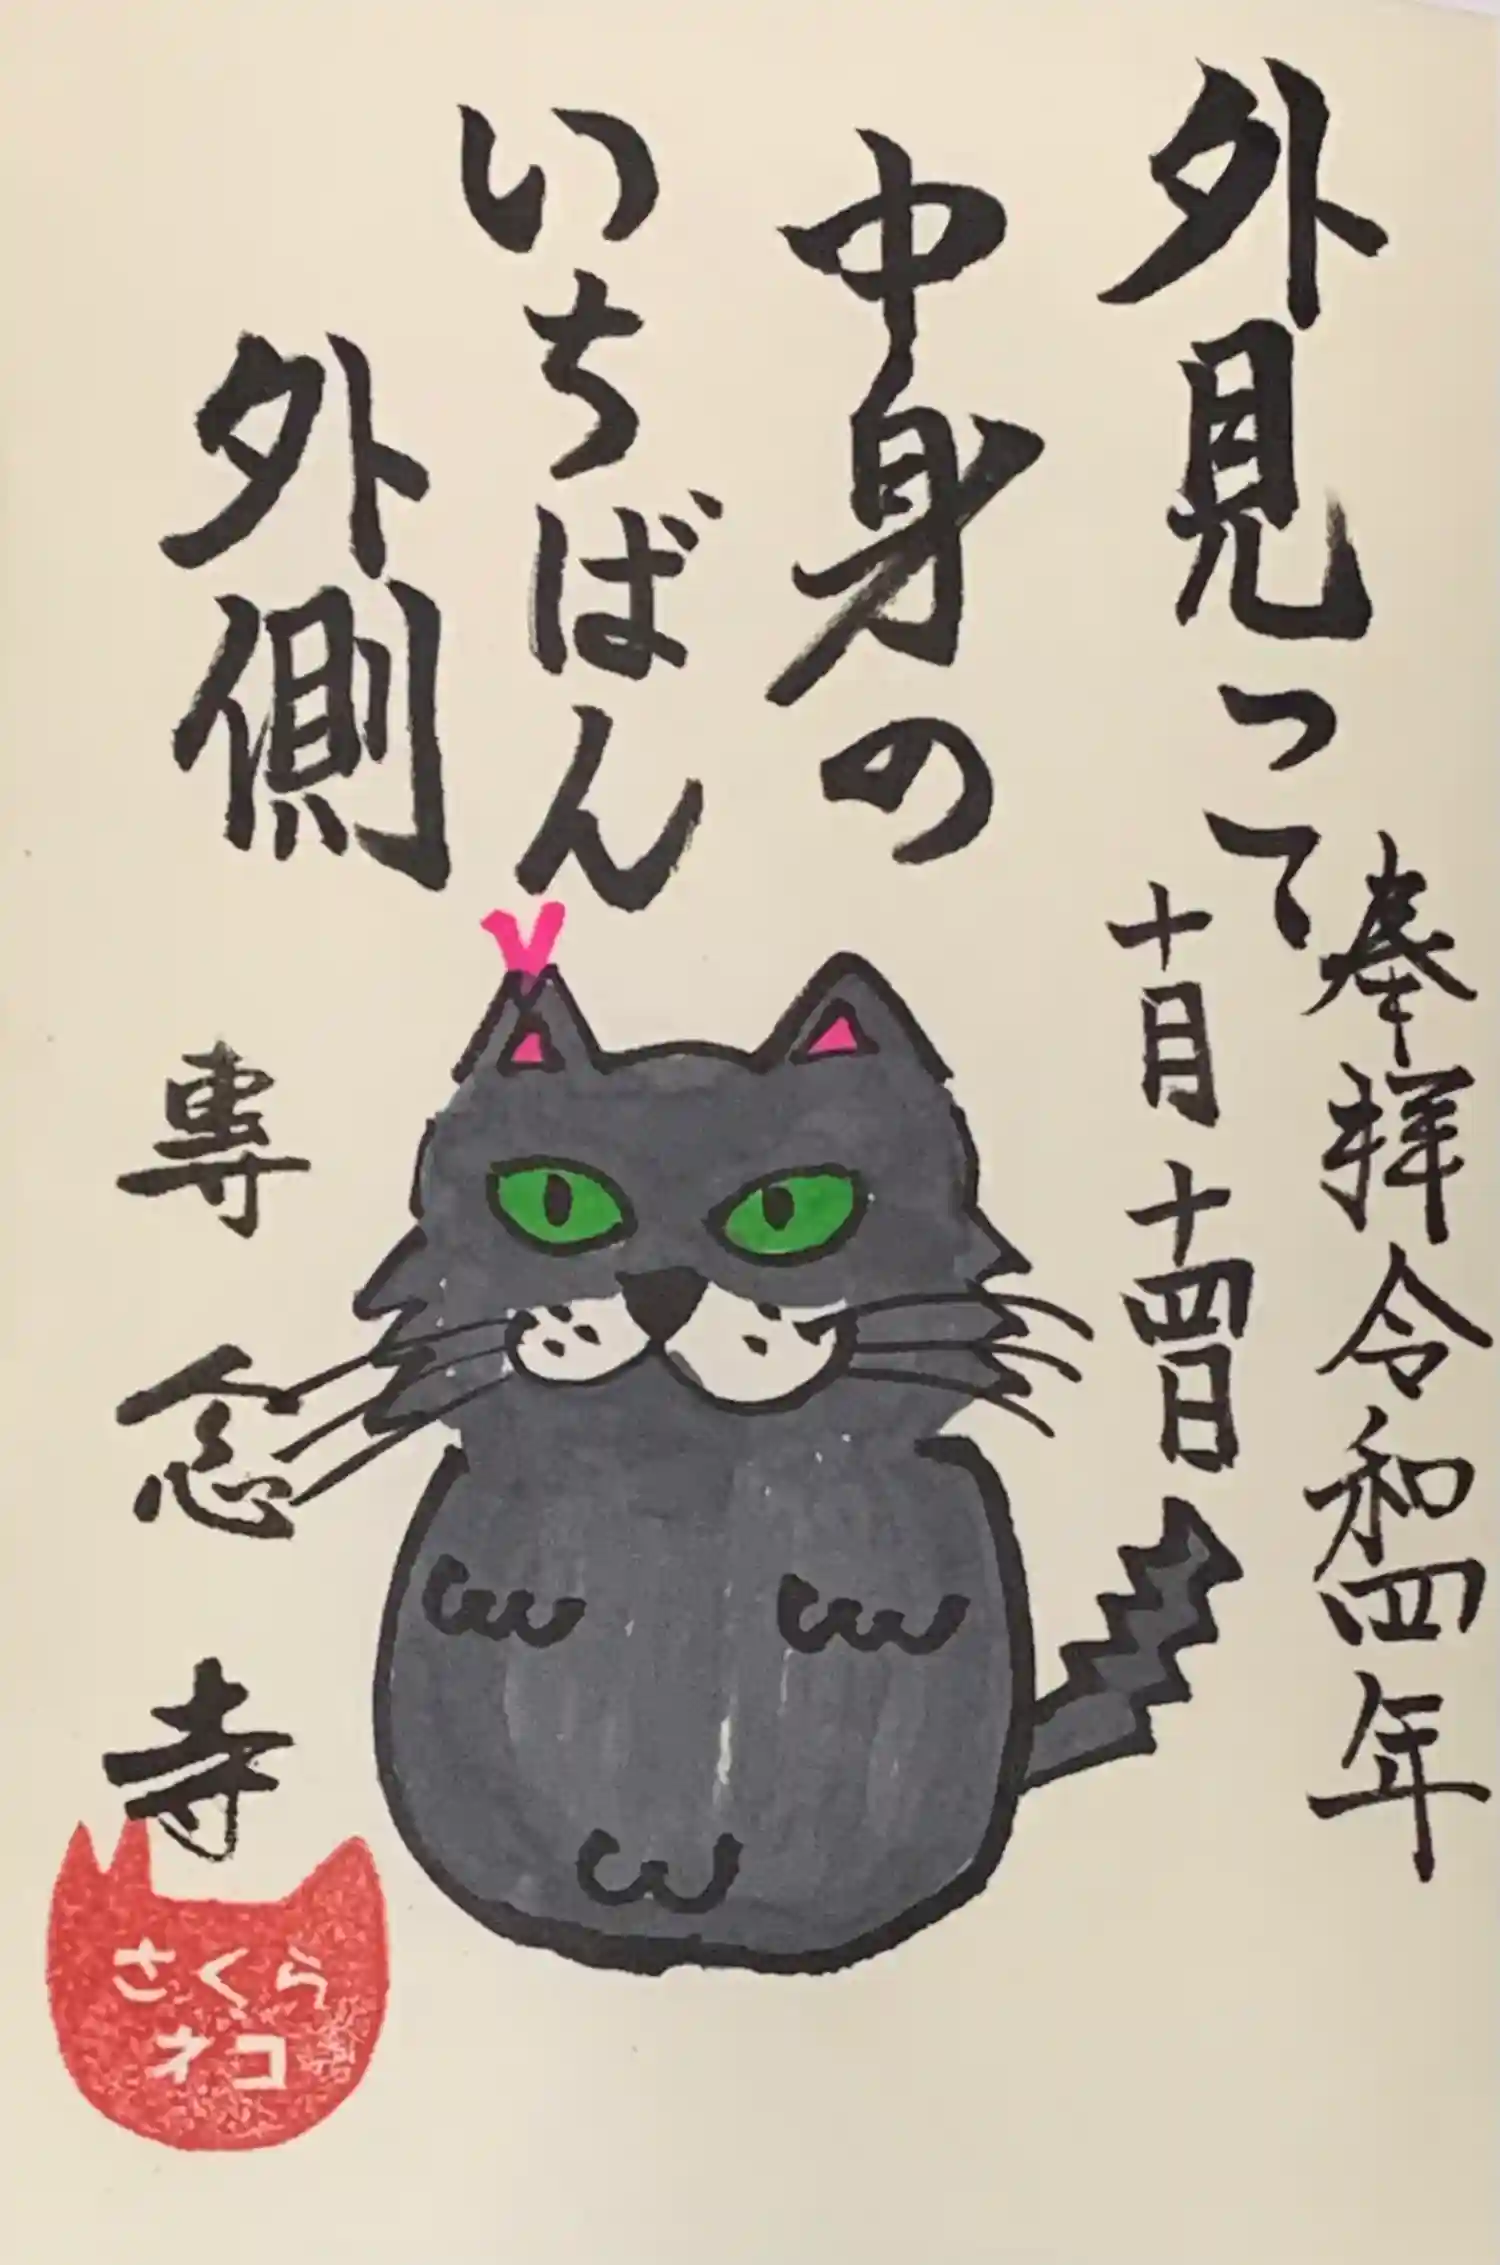 外見って
中身の
いちばん
外側
奉拝令和四年
十月十四日
専念寺
さくら
ネコ